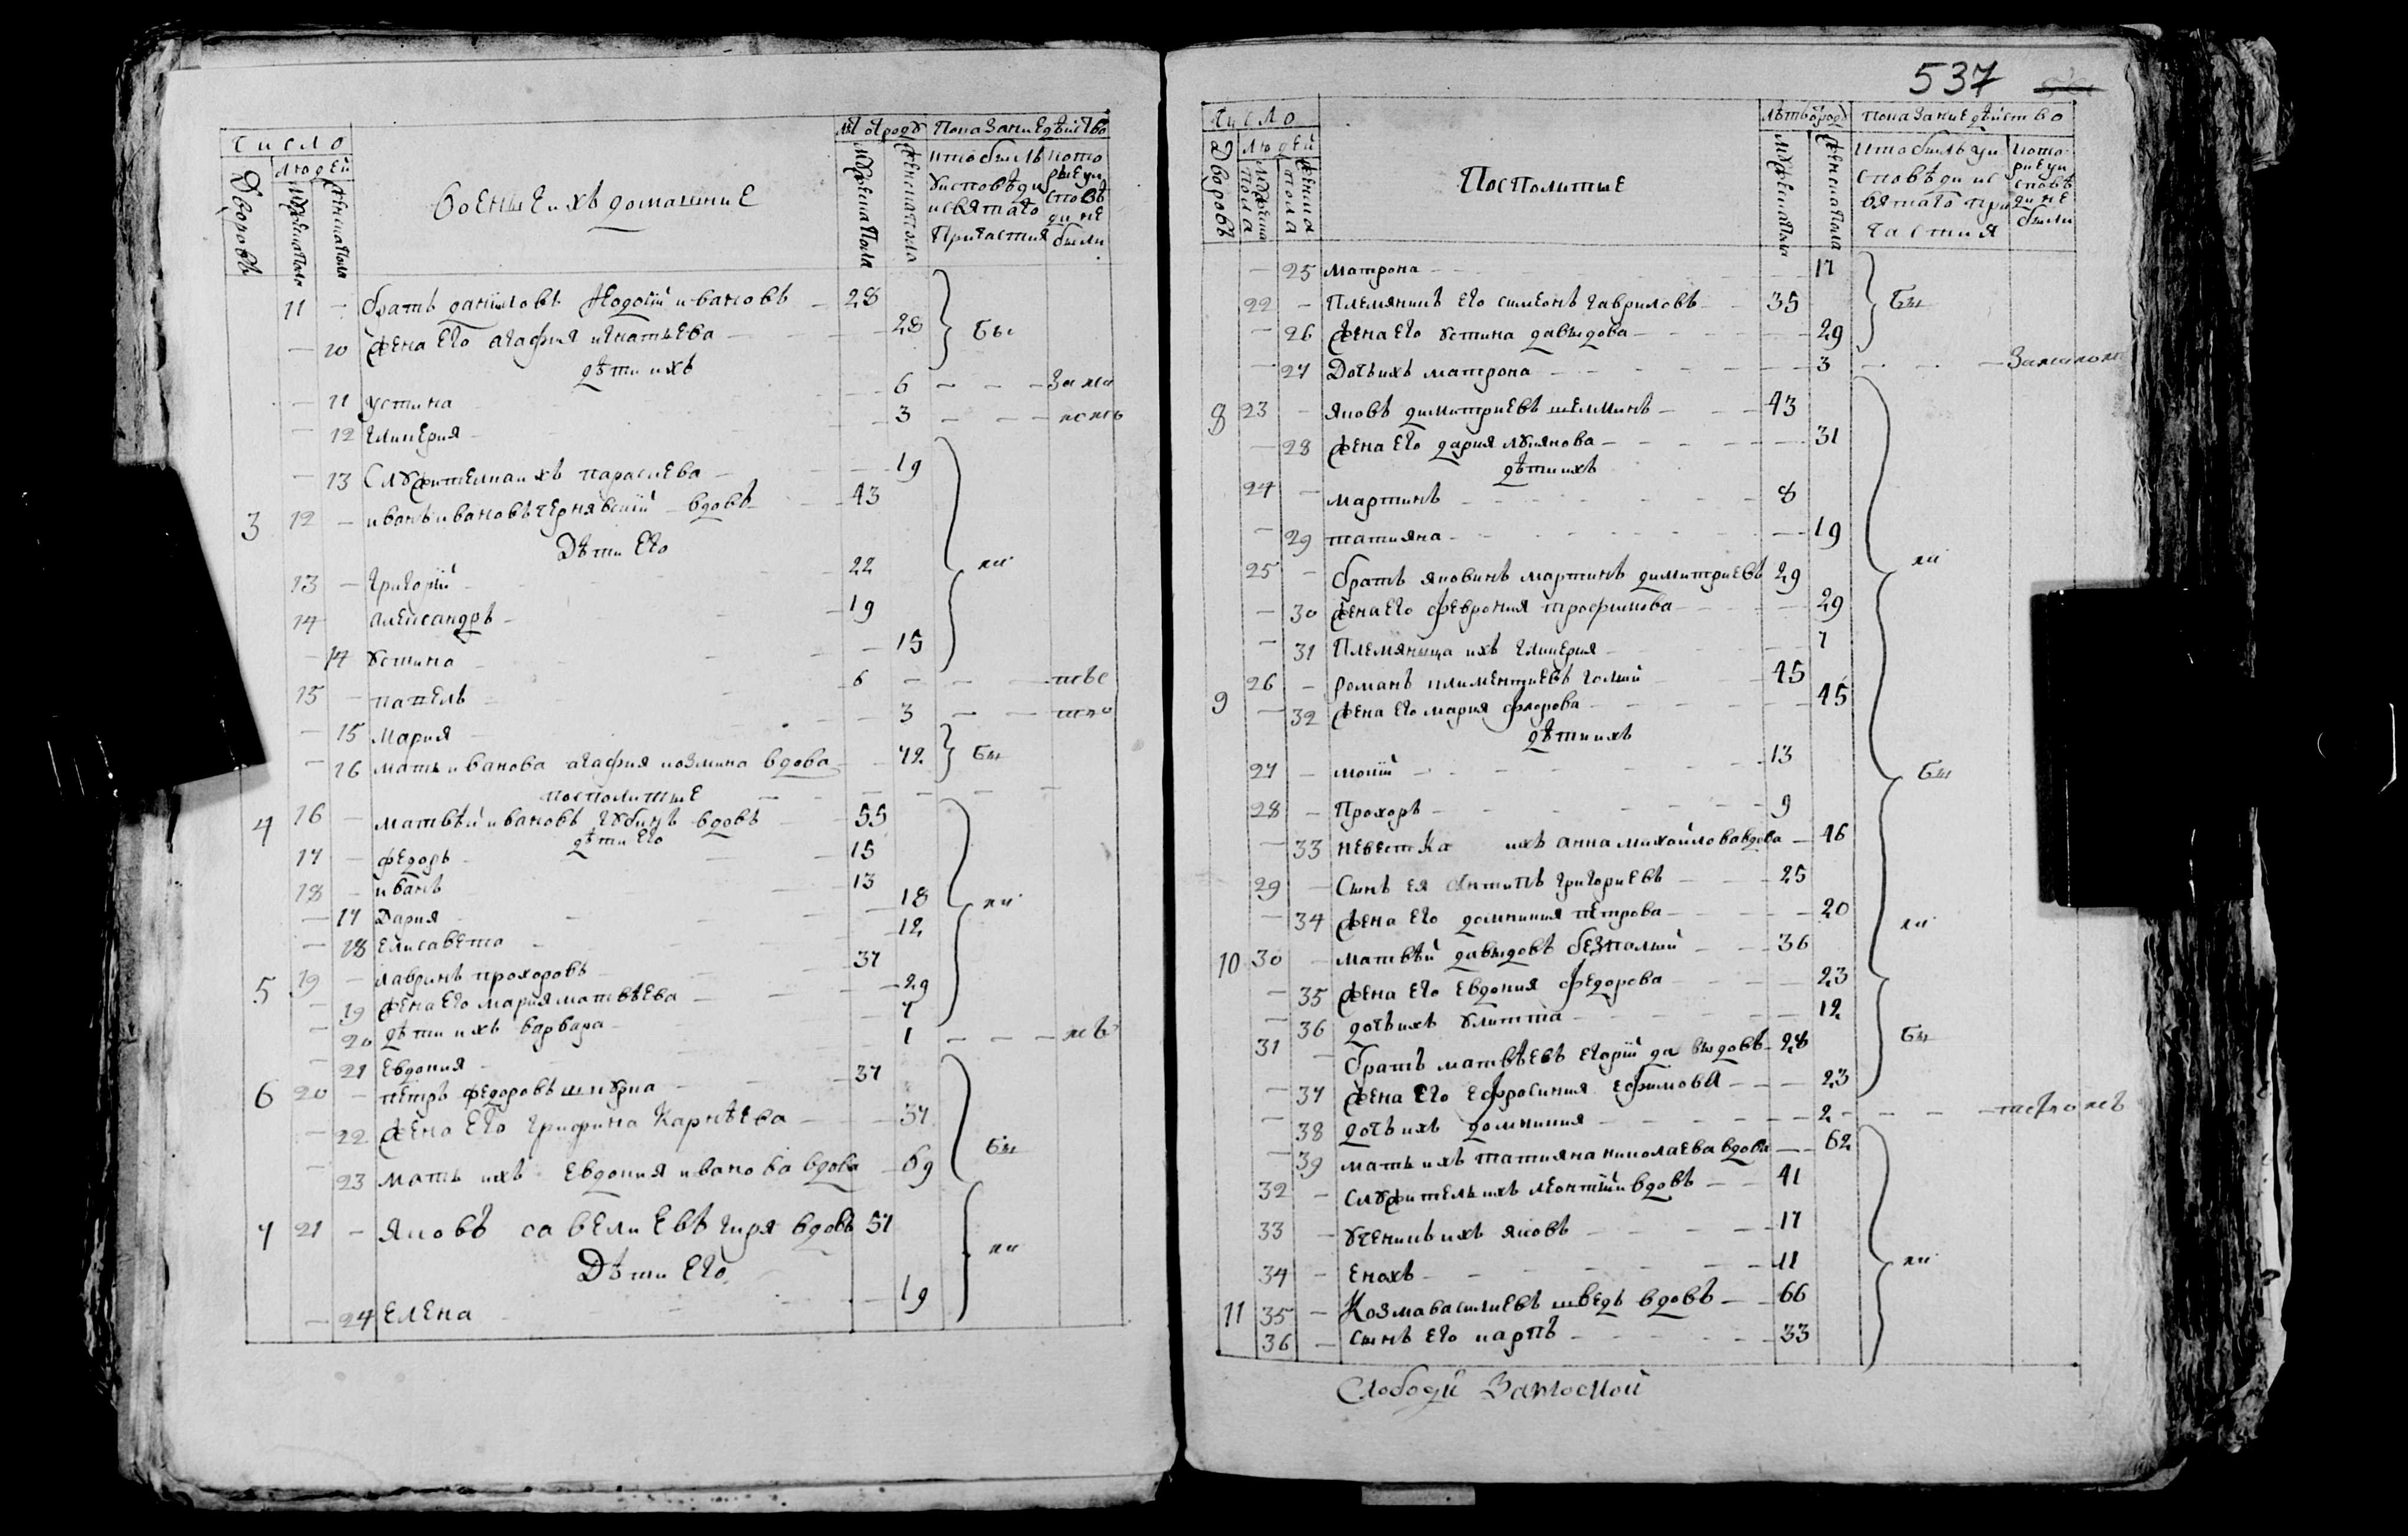 число
людей
дворовъ
мужеска пола
женска пола
военные ихъ домашние
лѣтъ отроду
мужеска пола
женска пола
показание действо
кто былъ
у исповѣди
и святаго
причастия
кото
рые у и
сповѣ
ди не
были
11 — братъ даниловъ Федосий ивановъ — 28
— 10 жена его агафия игнатьева — 28 бы
дѣти ихъ
— 11 устина — 6 — — — за ма
— 12 гликерия — 3 — — —
— 13 служителка ихъ параскева — 19
3 12 — иванъ ивановъ чернявский вдовъ — 43
Дѣти его
13 — григорий — 22 ли
14 — александръ — 19
— 14 устина — 15
15 — павелъ — 6 — — —
— 15 Мария — 3 — —
— 16 мать иванова агафия козмина вдова — 72 бы
посполитые
4 16 — матвѣй ивановъ губинъ вдовъ 55
дѣти его
17 — федоръ — 15
18 — иванъ — 13
— 17 Дария — 18 ли
— 18 Елисавета — 12
5 19 — лавринъ прохоровъ — 37
— 19 жена его мария матвѣева — 29
— 20 дѣти ихъ варвара — 7
— 21 евдокия — 1 — — —
6 20 — петръ федоровъ шкурка — 37
— 22 жена его грифина Карнѣева — 37
— 23 мать ихъ евдокия иванова вдова 69 бы
7 21 — яковъ савелиевъ гиря вдовъ 57
Дѣти его ли
— 24 Елена — 19
537
число
людей
дворовъ
мужеска пола
женска пола
Посполитые
лѣтъ отроду
мужеска пола
женска пола
показание действо
кто былъ у и
сповѣди и с
вятаго при
частия
кото
рые у и
сповѣ
ди не
были
— 25 матрона — 17
22 — племянникъ его симеонъ гавриловъ 35 бы
— 26 жена его устина давыдова — 29
— 27 Дочь ихъ матрона — 3 — — —
8 23 — яковъ димитриевъ шелминъ — 43
— 28 жена его дария лукянова — 31
дѣти ихъ
24 — мартинъ — 8
— 29 татияна — 19
25 — братъ яковинъ мартинъ димитриевъ 29 ли
— 30 жена его феврония трофимова — 29
— 31 Племяница ихъ гликерия — 7
9 26 — романъ климентиевъ голий 45
— 32 жена его мария фларова — 45
дѣти ихъ
27 — мокий — 13 бы
28 — Прохоръ — 9
— 33 невестка ихъ анна михайлова вдова — 46
29 — Сынъ ея антипъ григориевъ — 25
— 34 жена его домникия петрова — 20 ли
10 30 — матвѣй давыдовъ безпалый — 36
— 35 жена его евдокия федорова — 23
— 36 дочь ихъ улитта — 12
31 — братъ матвѣевъ егорий давыдовъ 28 бы
— 37 жена его ефросиния ефимова — 23
— 38 дочь ихъ домникия — 2 — — —
— 39 мать ихъ татияна николаева вдова — 62
32 — служитель ихъ леонтий вдовъ — 41
33 — ученикъ ихъ яковъ — 17
34 — Енохъ — 11 ли
11 35 — Козма василиевъ шведъ вдовъ — 66
36 — сынъ его карпъ — 33
Слободы